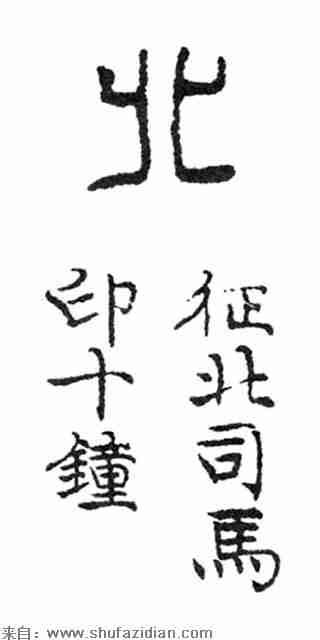 北
征北司馬
印十鐘
来自：www.shufazidian.com